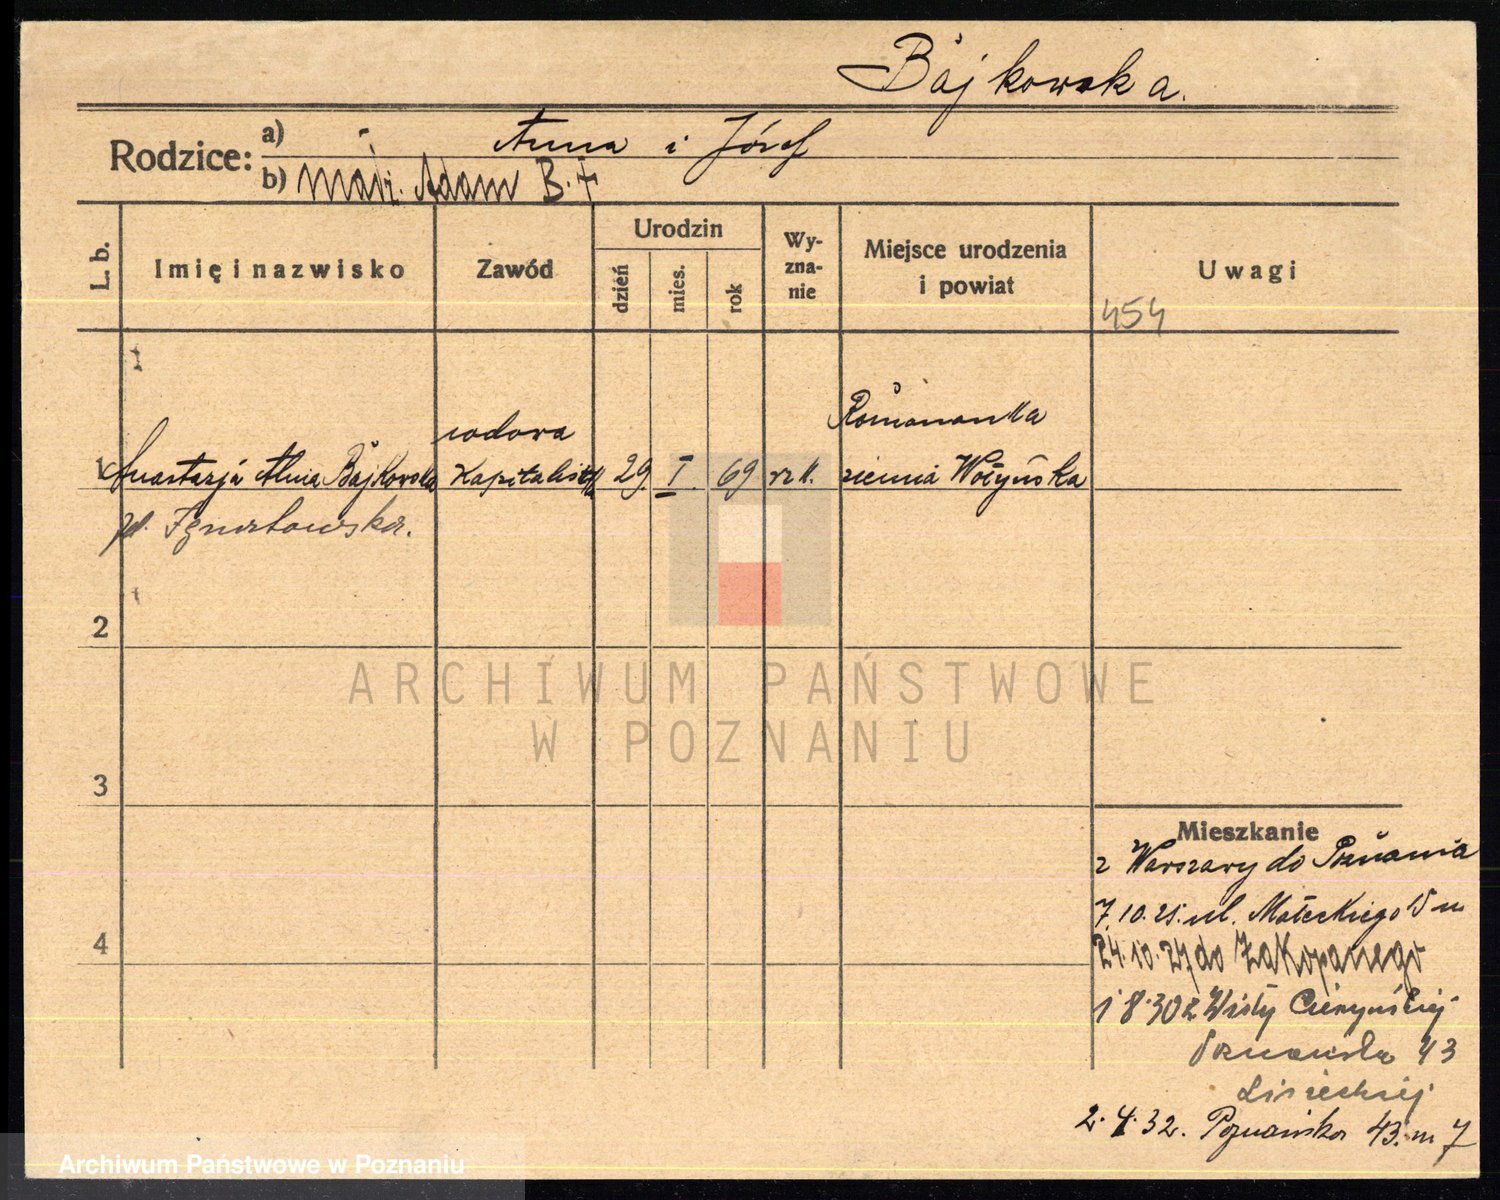 Bajkowska.
Rodzice: a) Anna i Józef
b) mąż. Adam B. †
L. b.
Imię i nazwisko
Zawód
Urodzin
dzień
mies.
rok
Wy-
zna-
nie
Miejsce urodzenia
i powiat
Uwagi
454
1
wdowa
Romanowka
Anastazja Bajkowska Kapitalistka 29. I. 69 rz k. ziemia Wołyńska
Ignatowska.
2
ARCHIWUM PAŃSTWOWE
W POZNANIU
3
Mieszkanie
z Warszawy do Poznania
7.10.25. ul. Małeckiego 15 m
4
24.10.27 do Zakopanego
1 8.30 z Wisły Cieszyńskiej
Poznańska 43
2.4.32. Poznańska 43. m 7
Archiwum Państwowe w Poznaniu